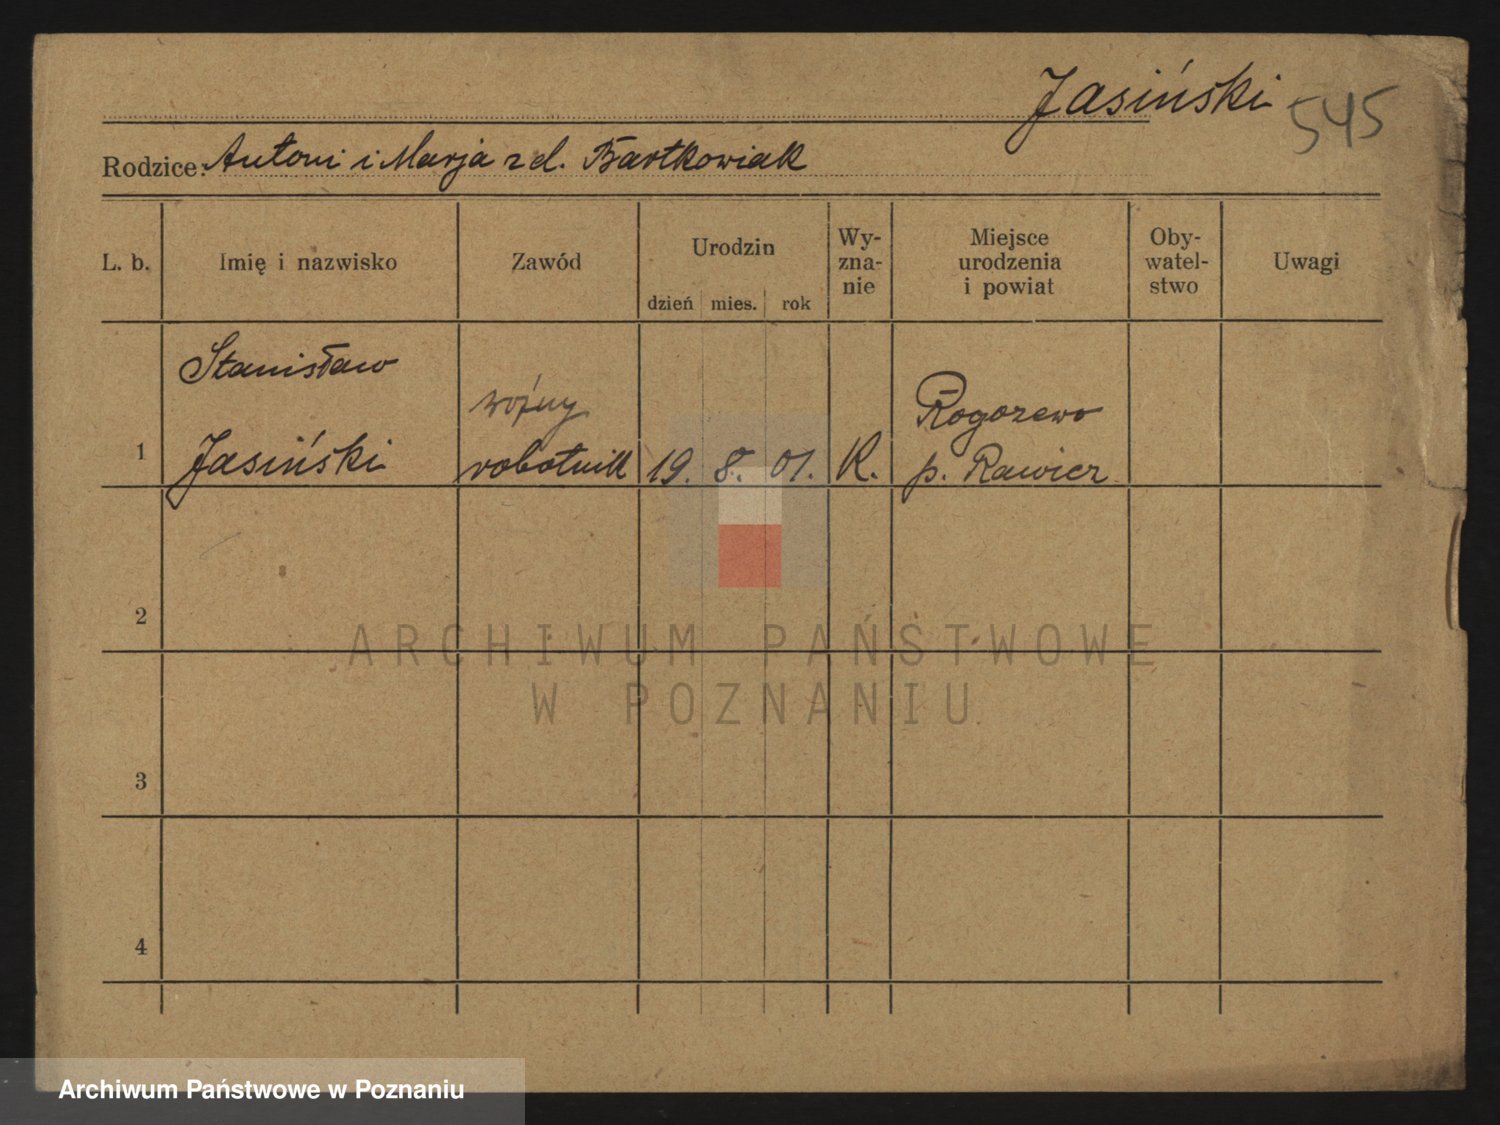 Jasiński 545
Rodzice: Antoni i Marja z d. Bartkowiak
L. b.
Imię i nazwisko
Zawód
Urodzin
dzień mies. rok
Wy-
zna-
nie
Miejsce
urodzenia
i powiat
Oby-
watel-
stwo
Uwagi
1
Stanisław
Jasiński
woźny
robotnik
19. 8. 01.
K.
Rogozewo
p. Rawicz
2
3
4
ARCHIWUM PAŃSTWOWE
W POZNANIU
Archiwum Państwowe w Poznaniu